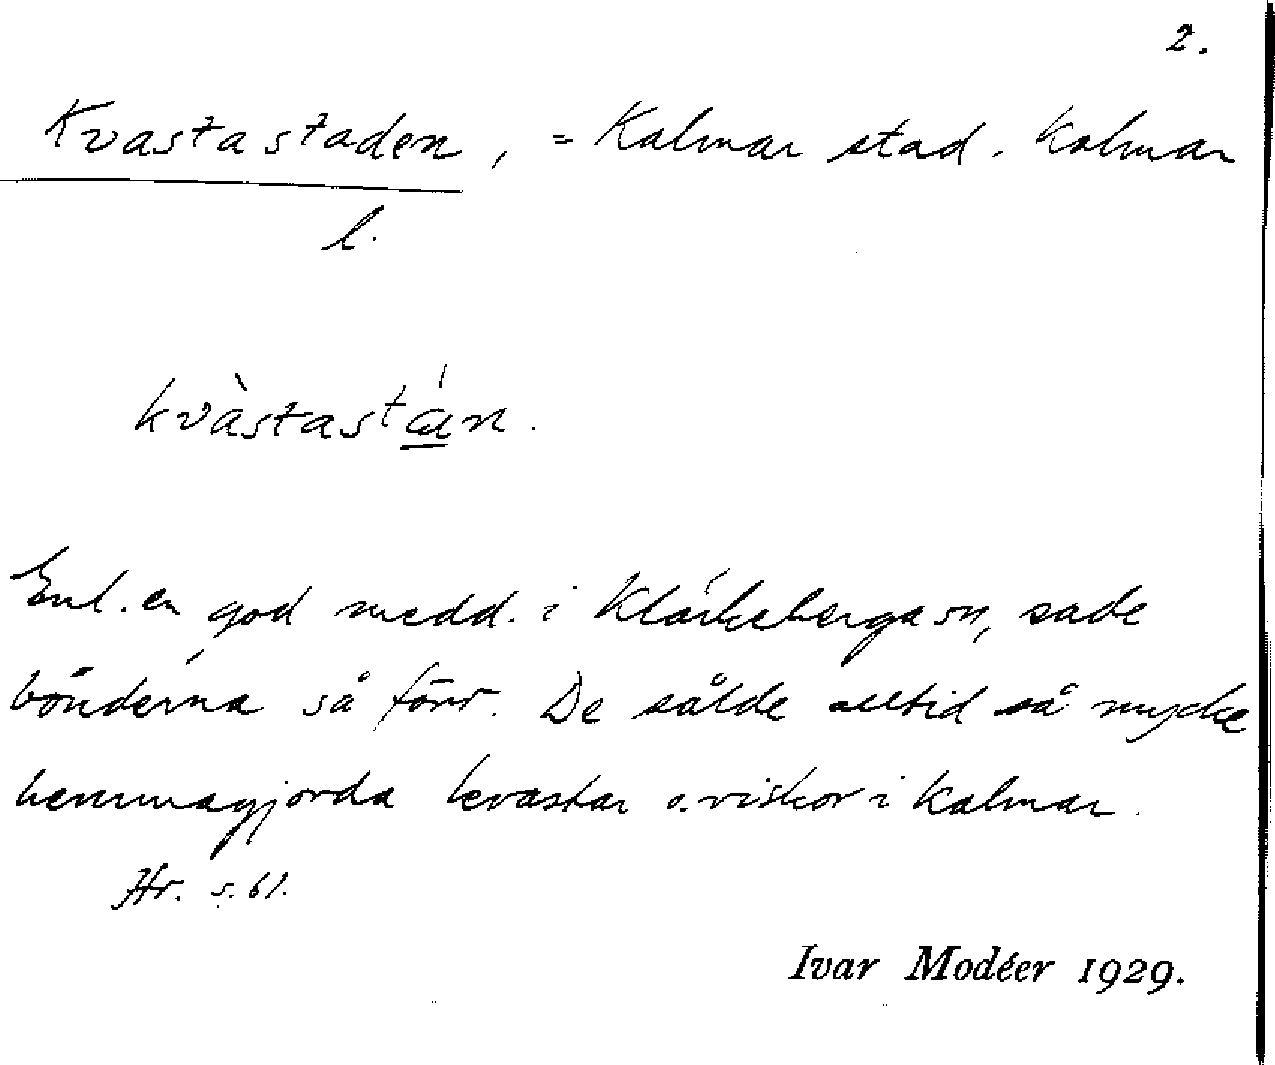 2.
Kvastastaden, = Kalmar stad. Kalmar
l.
kvàstastán.
Enl. en god medd. i Kläckeberga sn, sade
bönderna så förr. De sålde alltid så mycke
hemmagjorda kvastar o. viskor i Kalmar.
Hr. s. 61.
Ivar Modéer 1929.